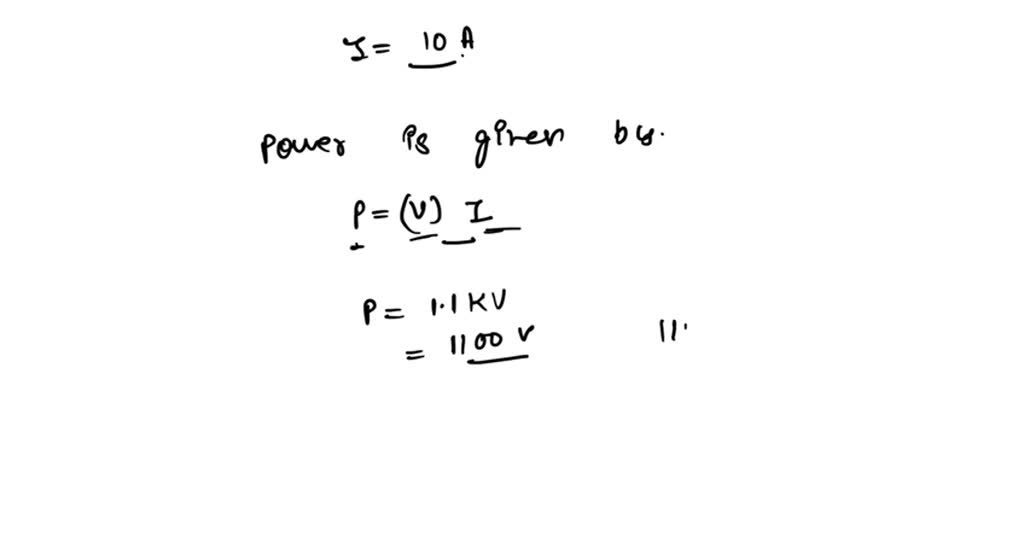 I = 10 A
Power is given by.
P = (V) I
P = 1.1 KV
= 1100 V 11.